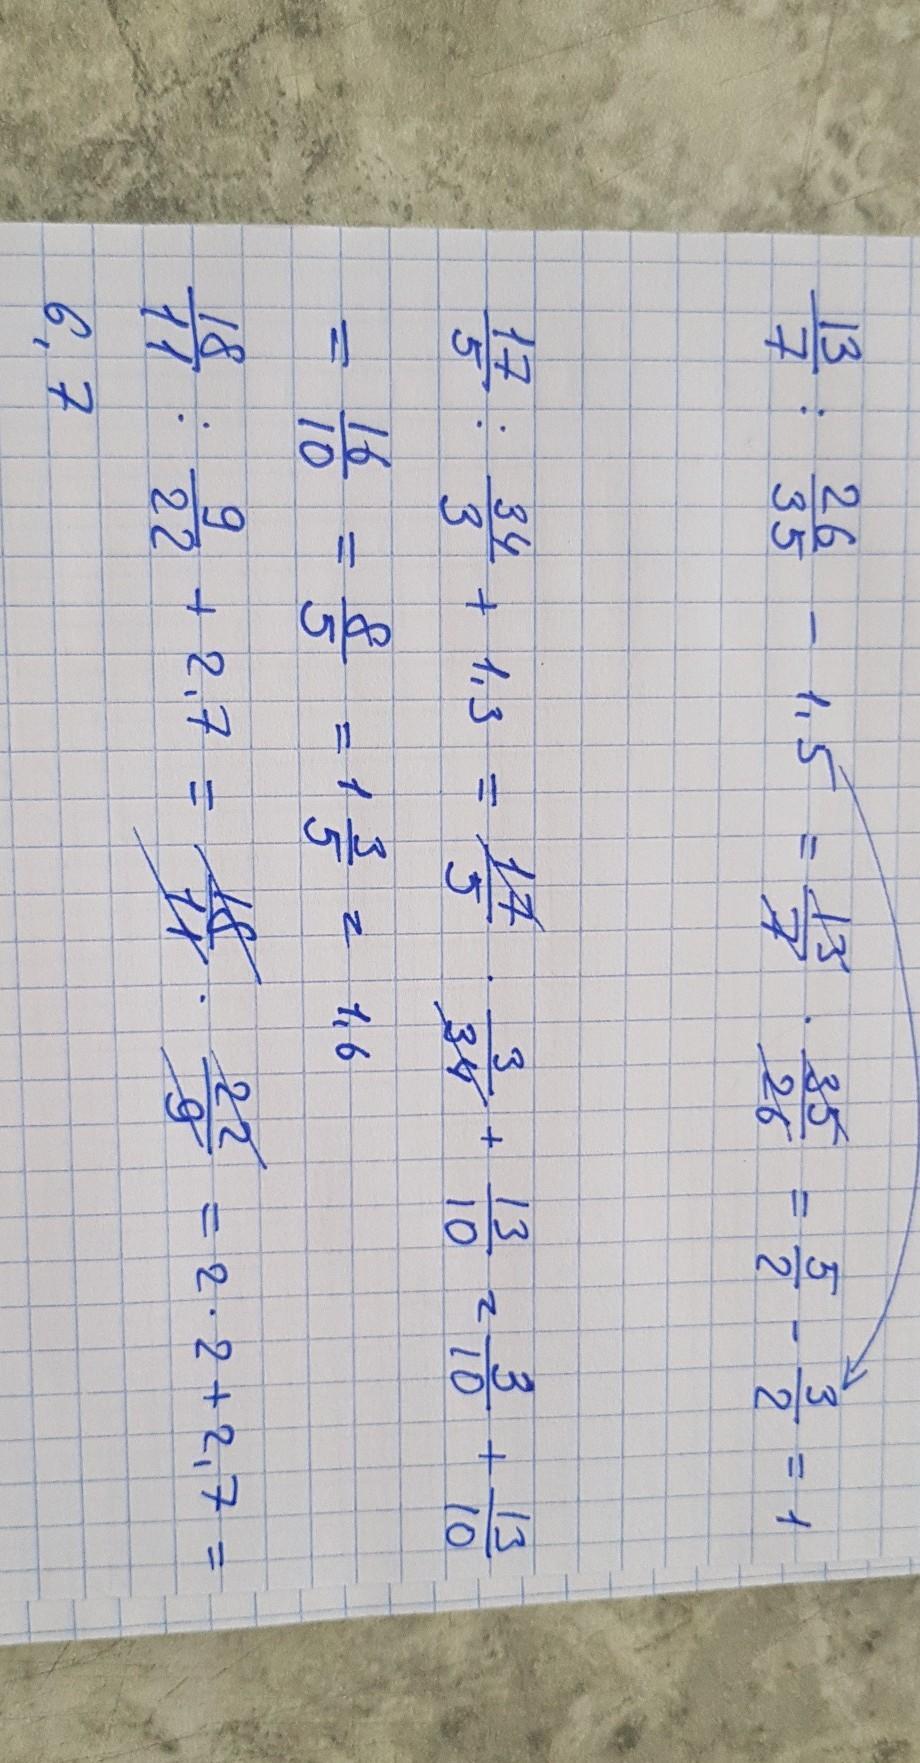 13/7 : 26/35 - 1,5 = 13/7 · 35/26 = 5/2 - 3/2 = 1
17/5 : 34/3 + 1,3 = 17/5 · 3/34 + 13/10 = 3/10 + 13/10
= 16/10 = 8/5 = 1 3/5 = 1,6
18/11 : 9/22 + 2,7 = 18/11 · 22/9 = 2 · 2 + 2,7 =
6,7